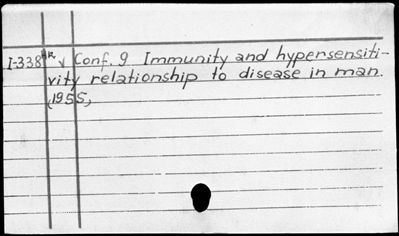 I-338 HR √ Conf. 9 Immunity and hypersensiti-
vity relationship to disease in man.
(1955)